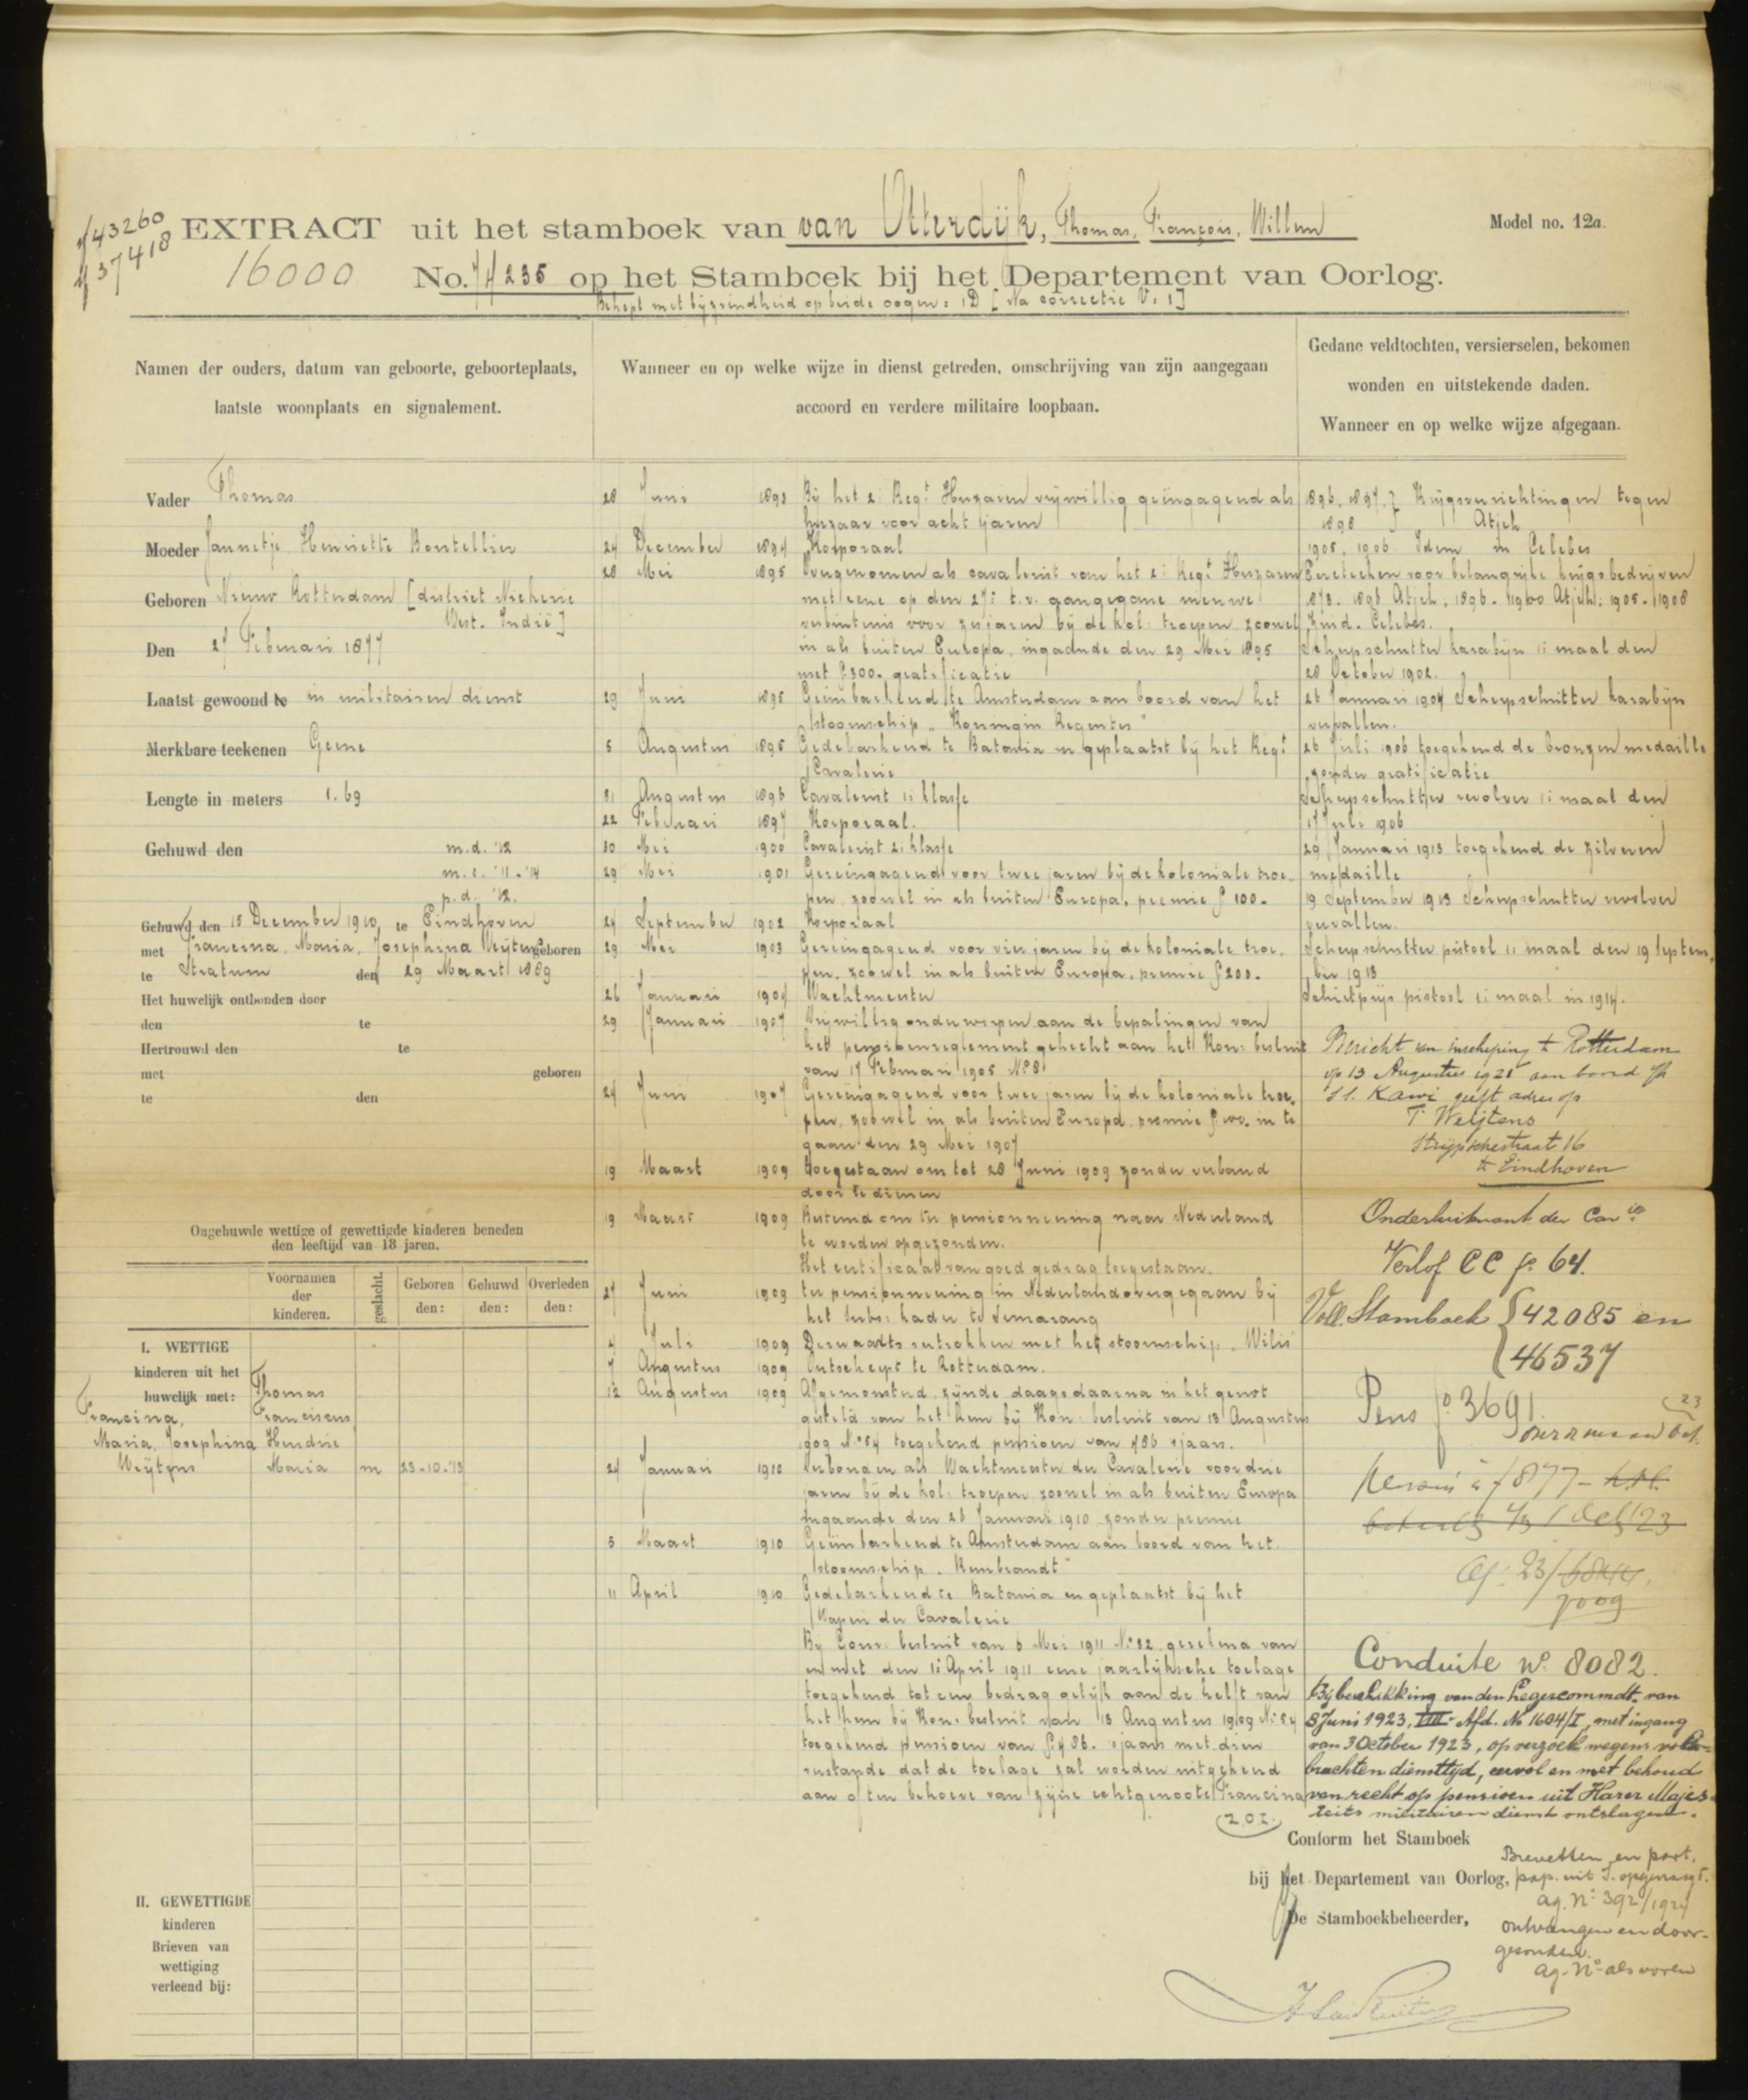 f 43260
f 37418
EXTRACT uit het stamboek van van Otterdijk, Thomas, François, Willem
Model no. 12a.
16000 No. 74235 op het Stamboek bij het Departement van Oorlog.
Behept met bijziendheid op beide oogen: 1D [Na correctie V: 1]
Namen der ouders, datum van geboorte, geboorteplaats,
laatste woonplaats en signalement.
Wanneer en op welke wijze in dienst getreden, omschrijving van zijn aangegaan
accoord en verdere militaire loopbaan.
Gedane veldtochten, versierselen, bekomen
wonden en uitstekende daden.
Wanneer en op welke wijze afgegaan.
Vader Thomas
Moeder Jannetje Henriette Bontellier
Geboren Nieuw Rotterdam [district Nickerie
West. Indië]
Den 27 Februari 1877
Laatst gewoond te in militairen dienst
Merkbare teekenen Geene
Lengte in meters 1.69
Gehuwd den m.d. '12
m.e. '11.'14
p.d. '12.
Gehuwd den 15 December 1910, te Eindhoven
met Francina, Maria, Josephina Weijtens geboren
te Stratum den 29 Maart 1889
Het huwelijk ontbonden door
den te
Hertrouwd den te
met geboren
te den
Ongehuwde wettige of gewettigde kinderen beneden
den leeftijd van 18 jaren.
Voornamen
der
kinderen.
geslacht.
Geboren
den:
Gehuwd
den:
Overleden
den:
I. WETTIGE
kinderen uit het
huwelijk met: Thomas
Francina, Franciscus
Maria, Josephina Hendrie
Weijtens Maria m 23-10-'13
II. GEWETTIGDE
kinderen
Brieven van
wettiging
verleend bij:
28 Juni 1893 Bij het 2e Regt Huzaren vrijwillig geëngageerd als
huzaar voor acht jaren
24 December 1894 Korporaal
28 Mei 1895 Overgenomen als cavalerist van het 2e Regt Huzaren
met eene op den 27e t.v. aangegane nieuwe
verbintenis voor zes jaren bij de kol: troepen zoowel
in als buiten Europa, ingaande den 29 Mei 1895
met f 300.- gratificatie
29 Juni 1895 Geëmbarkeerd te Amsterdam aan boord van het
stoomschip "Koningin Regentes"
5 Augustus 1895 Gedebarkeerd te Batavia en geplaatst bij het Regt
Cavalerie
31 Augustus 1896 Cavalerist 1e klasse
22 Februari 1897 Korporaal.
10 Mei 1900 Cavalerist 2e klasse
29 Mei 1901 Gereëngageerd voor twee jaren bij de koloniale troe-
pen, zoowel in als buiten Europa, premie f 100.-
24 September 1902 Korporaal
29 Mei 1903 Gereëngageerd voor vier jaren bij de koloniale troe-
pen, zoowel in als buiten Europa, premie f 200.-
26 Januari 1904 Wachtmeester
29 Januari 1907 Vrijwillig onderworpen aan de bepalingen van
het pensioenreglement gehecht aan het Kon: besluit
van 17 Februari 1905 No 81
24 Juni 1907 Gereëngageerd voor twee jaren bij de koloniale troe-
pen, zoowel in als buiten Europa, premie f 100. in te
gaan den 29 Mei 1907
19 Maart 1909 Toegestaan om tot 28 Juni 1909 zonder verband
door te dienen
19 Maart 1909 Bestemd om ter pensionneering naar Nederland
te worden opgezonden.
Het certificaat van goed gedrag toegestaan.
27 Juni 1909 ter pensionneering in Nederland overgegaan bij
het subs: kader te Semarang
4 Juli 1909 Derwaarts vertrokken met het stoomschip "Wilis"
7 Augustus 1909 Ontscheept te Rotterdam.
12 Augustus 1909 Afgemonsterd, zijnde daags daarna in het genot
gesteld van het hem bij Kon: besluit van 13 Augustus
1909 No 54 toegekend pensioen van f 436 'sjaars.
24 Januari 1910 Verbonden als Wachtmeester der Cavalerie voor drie
jaren bij de kol: troepen zoowel in als buiten Europa
ingaande den 26 Januari 1910 zonder premie
5 Maart 1910 Geëmbarkeerd te Amsterdam aan boord van het
stoomschip "Rembrandt"
11 April 1910 Gedebarkeerd te Batavia en geplaatst bij het
Wapen der Cavalerie
Bij Gouv: besluit van 6 Mei 1911 No 32 gerekend van
en met den 1e April 1911 eene jaarlijksche toelage
toegekend tot een bedrag gelijk aan de helft van
het hem bij Kon: besluit van 13 Augustus 1909 No 54
toegekend pensioen van f 436. 'sjaars met dien
verstande dat de toelage zal worden uitgekeerd
aan of ten behoeve van zijne echtgenoote Francina
z.o.z.
1896, 1897, } Krijgsverrichtingen tegen
1898 } Atjeh
1905, 1906 Idem in Celebes
Eereteeken voor belangrijke krijgsbedrijven
1873-1896 Atjeh, 1896-1900 Atjeh: 1905-1908
Zuid. Celebes.
Scherpschutter karabijn 1e maal den
28 October 1902.
26 Januari 1904 Scherpschutter karabijn
vervallen.
26 Juli 1906 toegekend de bronzen medaille
zonder gratificatie
Scherpschutter revolver 1e maal den
17 Juli 1906
29 Januari 1913 toegekend de zilveren
medaille
19 September 1913 Scherpschutter revolver
vervallen.
Scherpschutter pistool 1e maal den 19 Septem-
ber 1913
Schietprijs pistool 1e maal in 1914.
Bericht van inscheping te Rotterdam
op 13 Augustus 1921 aan boord v/h
s.s. Kawi geeft adres op
T. Weijtens
Strijpschestraat 16
te Eindhoven
Onderluitenant der Cavie
Verlof CC fo 64.
Voll. Stamboek { 42085 en
{ 46537
Pens fo 3691.
23
Pensioen à f 877-
1 Oct '23
Ag: 23/6844
7009
Conduite No 8082.
Bij beschikking van den Legercommdt. van
8 Juni 1923, VIIIe Afd. No 1604/I, met ingang
van 3 October 1923, op verzoek wegens vol-
brachten diensttijd, eervol en met behoud
van recht op pensioen uit Harer Majes-
teits militairen dienst ontslagen.
Conform het Stamboek
bij het Departement van Oorlog,
De Stamboekbeheerder,
Brevetten en part.
pap. uit I. opgevraagd.
ag. No 392/1924
ontvangen en door-
gezonden.
ag. No als voren